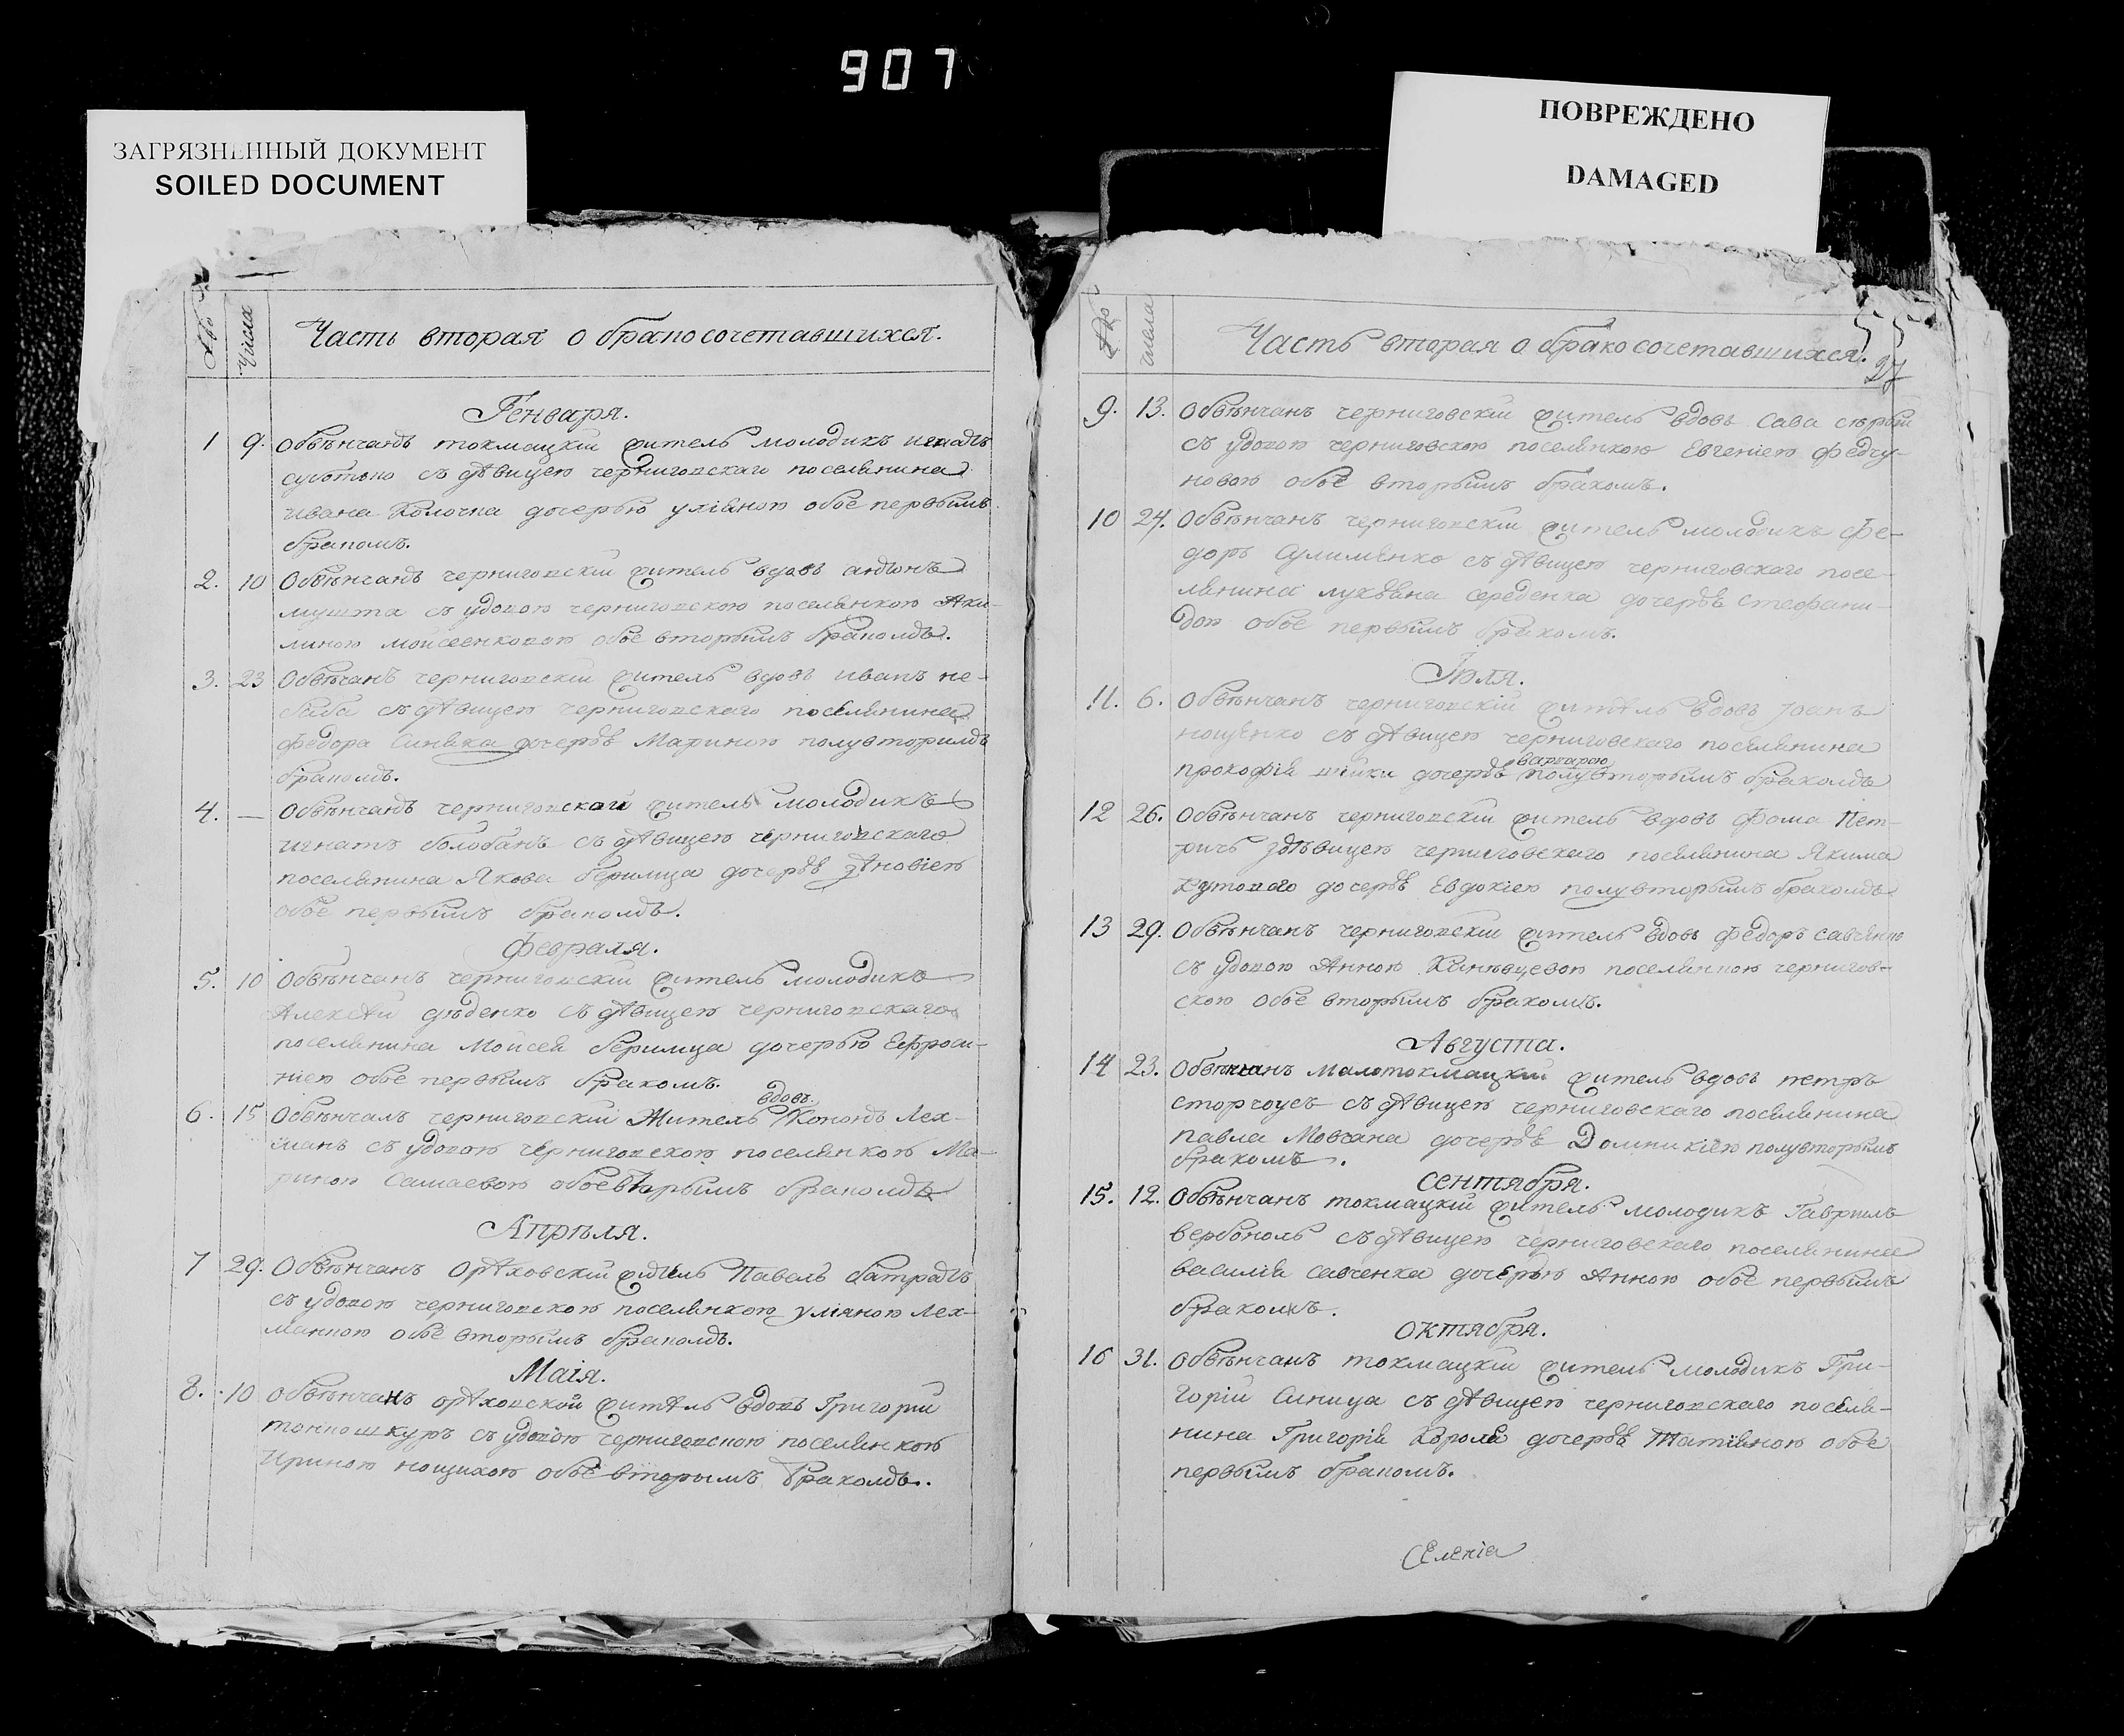 907
ЗАГРЯЗНЕННЫЙ ДОКУМЕНТ
SOILED DOCUMENT
ПОВРЕЖДЕНО
DAMAGED
Числа
Часть вторая о бракосочетавшихся.
Генваря.
1 9. Обвѣнчанъ токмацкій житель молодикъ
съ дѣвицею черниговскаго поселянина
ивана дочерью уліяною обое первымъ
бракомъ.
2. 10 Обвѣнчанъ черниговскій житель вдовъ антонъ
мушта съ удовою черниговскою поселянкою Аки-
линою мойсеенковою обое вторымъ бракомъ.
3. 23 Обвѣчанъ черниговскій житель вдовъ иванъ не-
съ дѣвицею черниговскаго поселянина
федора Синяка дочеръю Мариною полувторимъ
бракомъ.
4. — Обвѣнчанъ черниговской житель молодикъ
игнатъ болобанъ съ дѣвицею черниговскаго
поселянина Якова берилца дочеръю Зѣновіею
обое первымъ бракомъ.
февраля.
5. 10 Обвѣнчанъ черниговскій житель молодикъ
Алексѣй дѣденко съ дѣвицею черниговскаго
поселянина Мойсея берилца дочерью Ефроси-
ніею обое первымъ бракомъ.
вдовъ.
6. 15 Обвѣнчанъ черниговскій Житель Кононъ Лех-
манъ съ удовою черниговскою поселянкою Ма-
риною Самаевою обое вторымъ бракомъ
Апрѣля.
7 29. Обвѣнчанъ Орѣховскій житель Павелъ батракъ
съ удовою черниговскою поселянкою уліяною Лех-
манною обое вторымъ бракомъ.
Маія.
8. 10 обвѣнчанъ орѣховской житель вдовъ Григорій
тонкошкуръ съ удовою черниговскою поселянкою
Ириною нощихою обое вторымъ бракомъ.
числа
55
Часть вторая о бракосочетавшихся.
27
9. 13. Обвѣнчанъ черниговскій житель вдовъ Сава сѣрый
съ удовою черниговскою поселянкою Евгеніею федчу-
новою обое вторымъ бракомъ.
10 24. Обвѣнчанъ черниговскій житель молодикъ фе-
доръ Сулименко съ дѣвицею черниговскаго посе-
лянина лукьяна середенка дочеръю стефани-
дою обое первымъ бракомъ.
Іюля.
11. 6. Обвѣнчанъ черниговскій житель вдовъ Іоанъ
нощенко съ дѣвицею черниговскаго поселянина
варварою
прокофія шійки дочеръю полувторымъ бракомъ
12 26. Обвѣнчанъ черниговскій житель вдовъ Фома Пет-
ричъ здѣвицею черниговскаго поселянина Якима
Кутового дочеръю Евдокіею полувторымъ бракомъ
13 29. Обвѣнчанъ черниговскій житель вдовъ федоръ савченко
съ удовою Анною Канѣвцевою поселянкою чернигов-
скою обое вторымъ бракомъ.
Августа.
14 23. Обвѣнчанъ малотокмацкій житель вдовъ петръ
сторчоусъ съ дѣвицею черниговскаго поселянина
павла Мовчана дочеръю Домникіею полувторымъ
бракомъ.
сентября.
15. 12. Обвѣнчанъ токмацкій житель молодикъ Гаврилъ
верболозъ съ дѣвицею черниговскаго поселянина
василія савченка дочерью Анною обое первымъ
бракомъ.
октября.
16 31. Обвѣнчанъ токмацкій житель молодикъ Гри-
горій Синица съ дѣвицею черниговскаго поселя-
нина Григорія Короля дочеръю Татіяною обое
первымъ бракомъ.